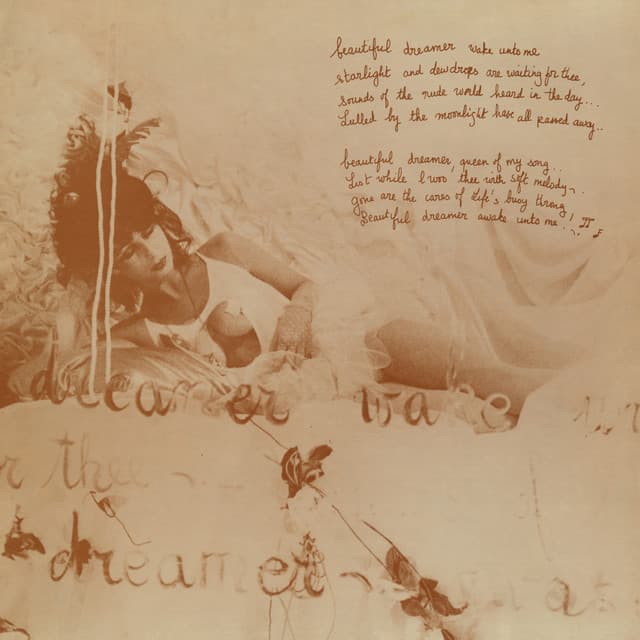 beautiful dreamer wake unto me
starlight and dewdrops are waiting for thee,
sounds of the rude world heard in the day...
Lulled by the moonlight have all passed away..
beautiful dreamer, queen of my song...
List while I woo thee with soft melody..
gone are the cares of life's busy throng,
Beautiful dreamer awake unto me....
dreamer wake
r thee
dreamer